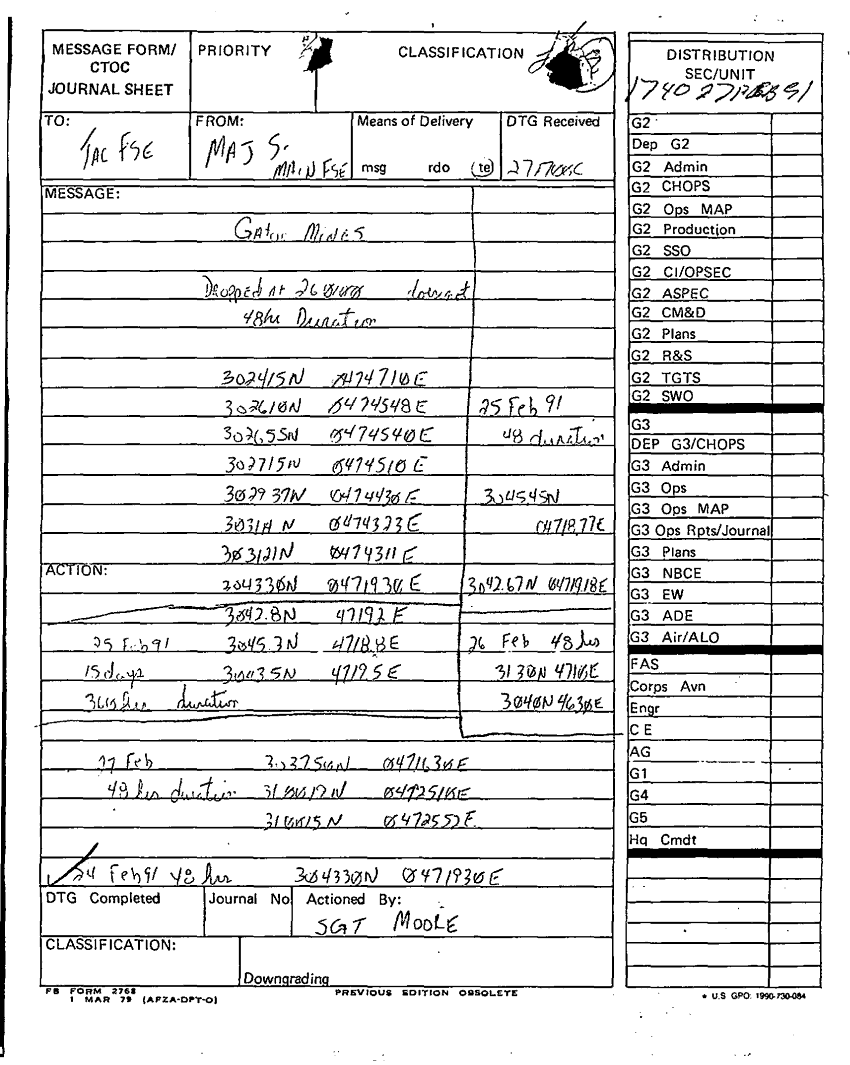 MESSAGE FORM/
CTOC
JOURNAL SHEET
PRIORITY
CLASSIFICATION
TO:
TAC FSE
FROM:
MAJ S.
MAIN FSE
Means of Delivery
msg rdo (te)
DTG Received
MESSAGE:
Gator MINES
Dropped At
48hr Duration
302415N 0474710E
302610N 0474548E
25 Feb 91
302655N 0474540E
48 duration
302715N 0474510E
302937N 0474430E
304545N
0474323E
04718.77E
303121N 0474311E
ACTION:
304330N 0471930E
3042.67N 04719.18E
3042.8N 4719.2E
25 Feb 91
3045.3N 4718.8E
26 Feb 48 hrs
15 days
3043.5N 4719.5E
3130N 4710E
360 hr duration
3040N 4630E
27 Feb
303750N 0471630E
48 hrs duration
310017N 0472510E
310015N 0472552E
24 Feb 91 48 hrs 304330N 0471930E
DTG Completed
Journal No
Actioned By:
SGT MOORE
CLASSIFICATION:
Downgrading
FB FORM 2768
1 MAR 79 (AFZA-DPT-O)
PREVIOUS EDITION OBSOLETE
DISTRIBUTION
SEC/UNIT
1740 27 FEB 91
G2
Dep G2
G2 Admin
G2 CHOPS
G2 Ops MAP
G2 Production
G2 SSO
G2 CI/OPSEC
G2 ASPEC
G2 CM&D
G2 Plans
G2 R&S
G2 TGTS
G2 SWO
G3
DEP G3/CHOPS
G3 Admin
G3 Ops
G3 Ops MAP
G3 Ops Rpts/Journal
G3 Plans
G3 NBCE
G3 EW
G3 ADE
G3 Air/ALO
FAS
Corps Avn
Engr
C E
AG
G1
G4
G5
Hq Cmdt
* U.S GPO: 1990-730-084